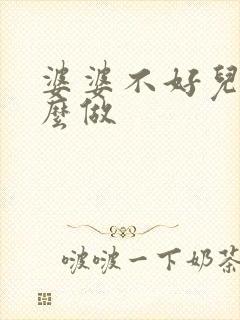 婆婆不好兒
麼做
啵啵一下奶茶